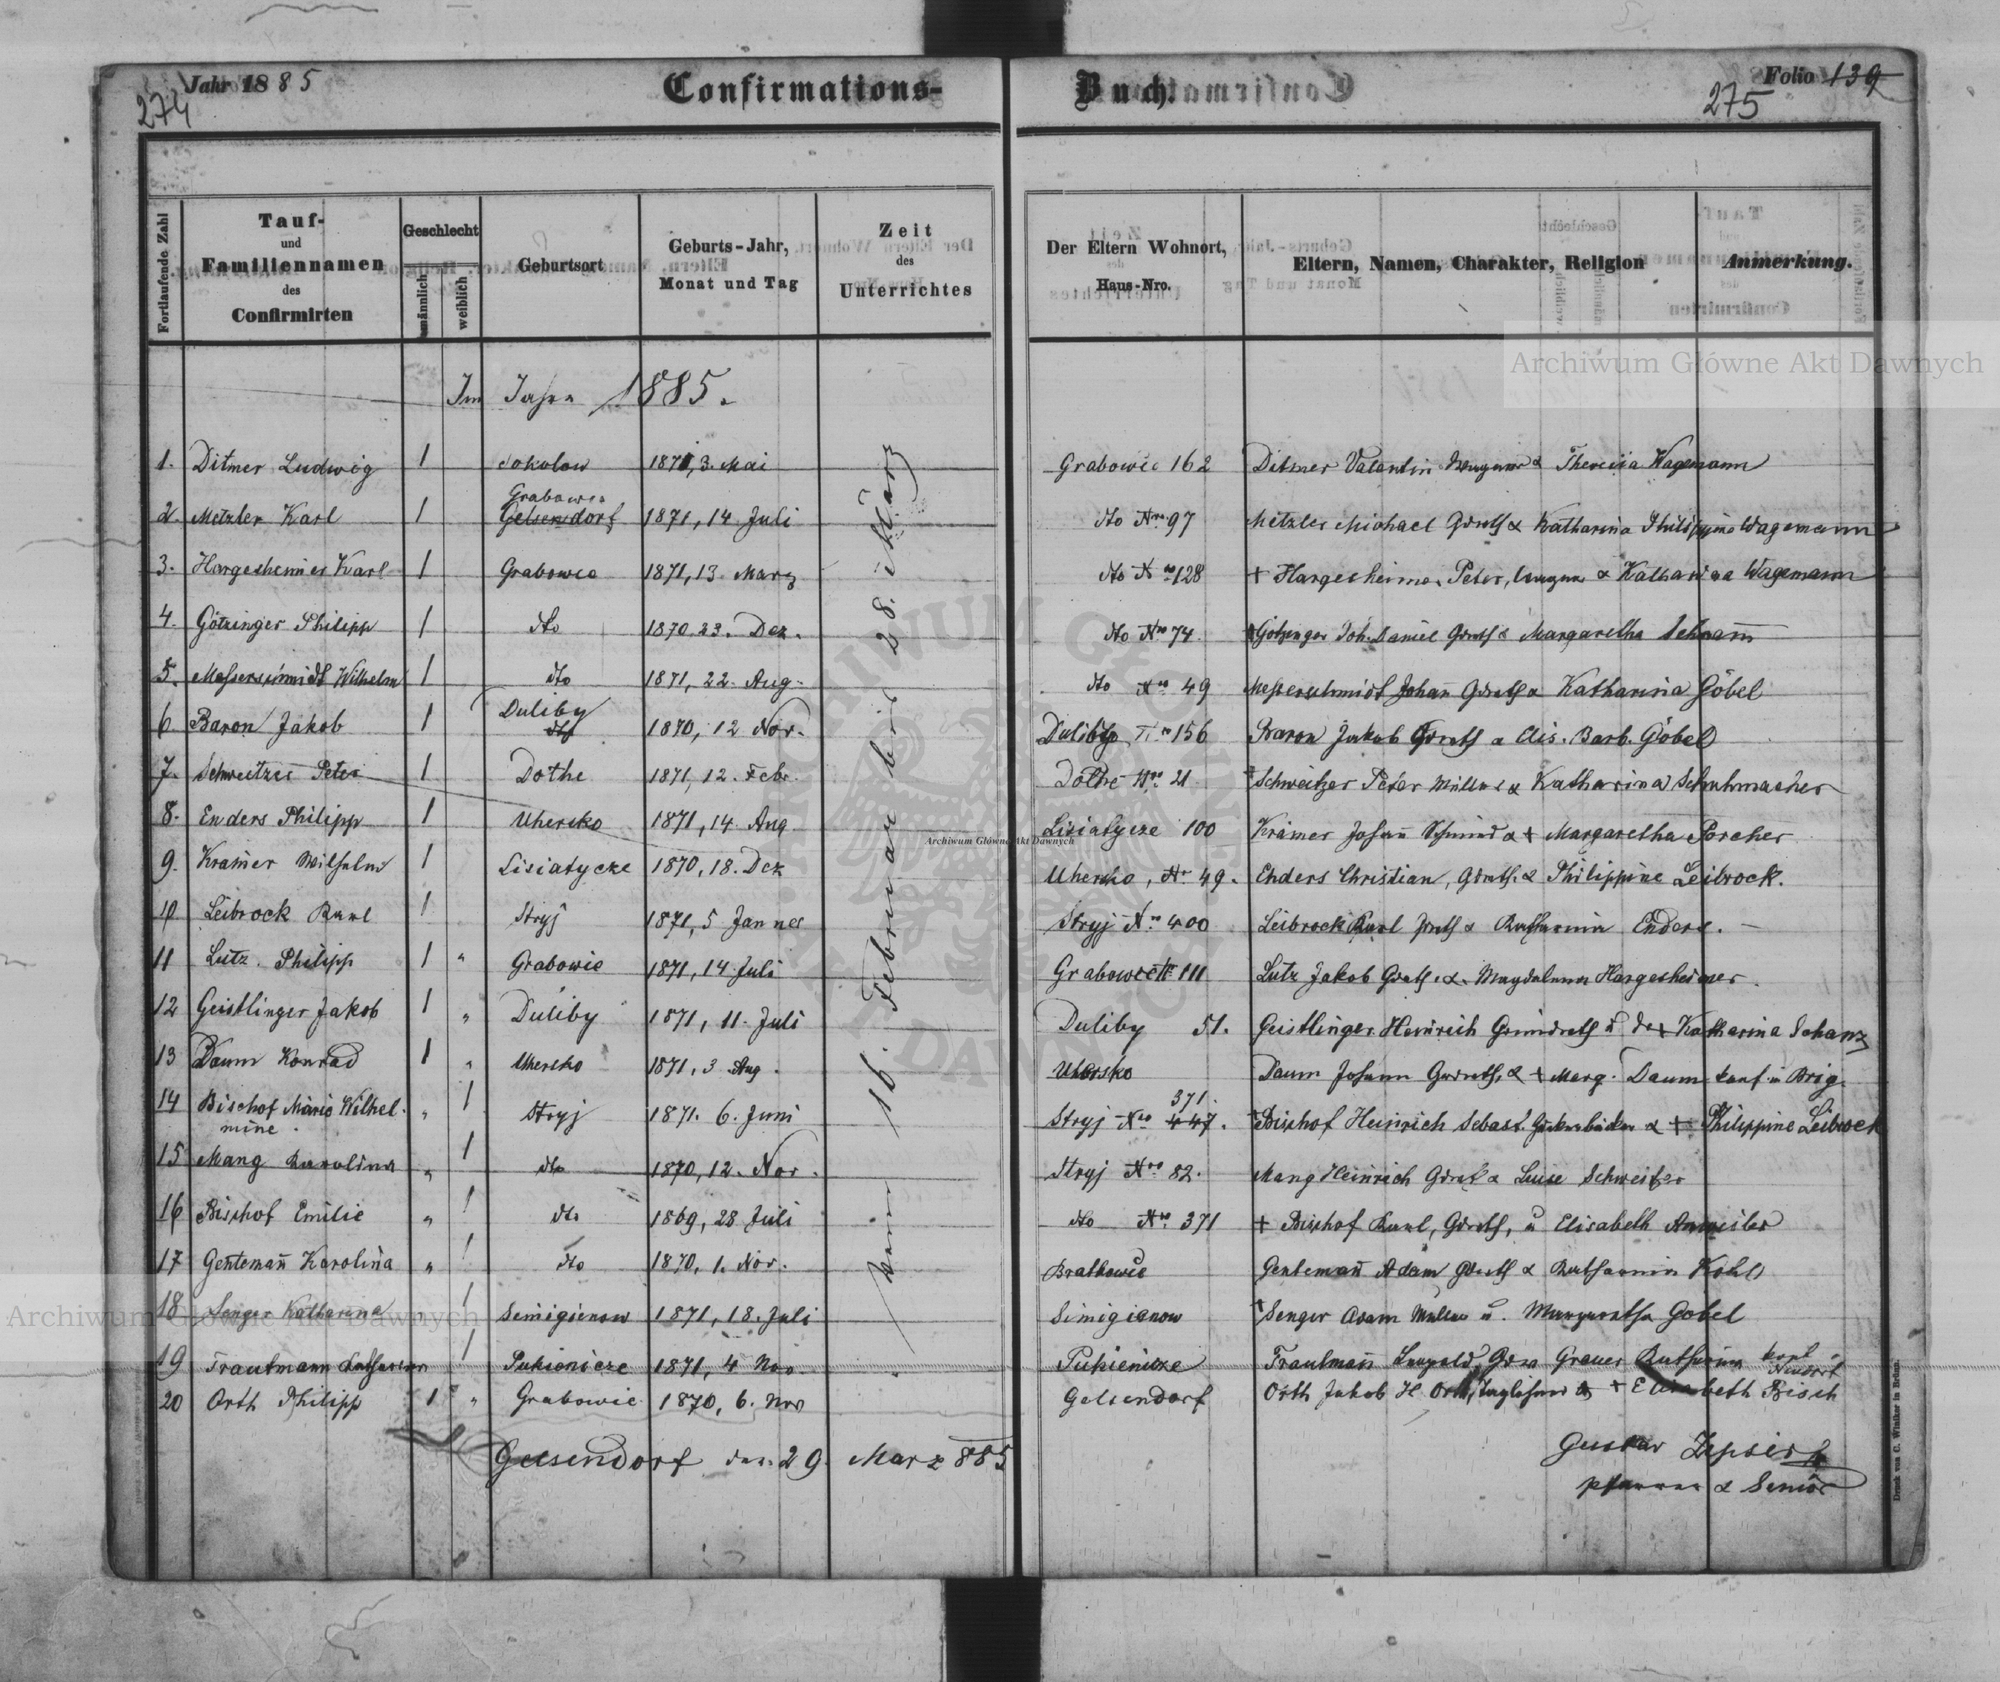 Jahr 1885
274
Confirmations-
Buch.
Folio 139
275
Fortlaufende Zahl
Tauf-
und
Familiennamen
des
Confirmirten
Geschlecht
männlich
weiblich
Geburtsort
Geburts-Jahr,
Monat und Tag
Zeit
des
Unterrichtes
Der Eltern Wohnort,
Haus-Nro.
Eltern, Namen, Charakter, Religion
Anmerkung.
Im Jahre 1885.
16. Februar bis 28. März
1. Ditmer Ludwig 1 Sokolow 1871, 3. Mai Grabowie 162 Ditmer Valantin & Theresia Wagemann
2. Metzler Karl 1 Grabowce Gelsendorf 1871, 14. Juli dto Nro 97 Metzler Michael Grdwth & Katharina Philippine Wagemann
3. Hargesheimer Karl 1 Grabowce 1871, 13. Marz dto Nro 128 + Hargesheimer Peter, & Katharina Wagemann
4. Götzinger Philipp 1 dto 1870 23. Dez. dto Nro 74. Götzinger Joh. Daniel Grdwth & Margaretha Schram̅
5. Messerschmidt Wilhelm 1 dto 1871, 22. Aug. dto Nro 49 Messerschmidt Johan̅ Grdwth & Katharina Göbel
6. Baron Jakob 1 Duliby dto 1870, 12 Nov. Duliby Nro 156 Baron Jakob Grdwth & Elis. Barb. Göbel
7. Schweitzer Peter 1 Dothe 1871, 12. Febr. Dolhe Nro 21 + Schweitzer Peter Müller & Katharina Schuhmacher
8. Enders Philipp 1 Uhersko 1871, 14. Aug Lisiatycze 100 Krämer Johan̅ Schmied & + Margaretha Porcher
9. Kramer Wilhelm 1 Lisiatycze 1870, 18. Dez Uhersko, Nr 49. Enders Christian, Grdwth. & Philippine Leibrock.
10 Leibrock Karl 1 Stryj 1871, 5 Janner Stryj Nro 400 Leibrock Karl Grdwth & Katharina Enders.
11 Lutz Philipp 1 " Grabowie 1871, 14. Juli Grabowce Nr 111 Lutz Jakob Grdwth. &. Magdalena Hargesheimer
12 Geistlinger Jakob 1 " Duliby 1871, 11. Juli Duliby 51. Geistlinger Heinrich Katharina Schanz
13 Daum Konrad 1 " Uhersko 1871, 3 Aug. Uhersko Daum Johann Grdwth. & + Marg. Daum
14 Bischof Marie Wilhel-
mine " 1 Stryj 1871. 6. Juni Stryj Nro 447. 371. + Bischof Heinrich Sebast. & + Philippine Leibrock
15 Mang Karolina " 1 dto 1870, 12. Nov. Stryj Nro 82. Mang Heinrich Grdwth & Luise Schweitzer
16 Bischof Emilie " 1 dto 1869, 28 Juli dto Nro 371 + Bischof Karl, Grdwth, u Elisabeth Anweiler
17 Genteman̅ Karolina " 1 dto 1870, 1. Nov. Bratkowce Genteman̅ Adam Grdwth & Katharina Kohl
18 Senger Katharina " 1 Semigienow 1871, 18. Juli Simigienow + Senger Adam Müller u. Margaretha Gobel
19 Trautmann Katharina 1 Pukienicze 1871, 4 Nov. Pukienicze Trautman̅ Leopold, Katharina
20 Orth Philipp 1 " Grabowie 1870, 6. Nov Gelsendorf Orth Jakob H. & + Elisabeth Bisch
Gelsendorf den 29. Marz 885
Pfarrer & Senior
Druck von C. Winiker in Brünn.
Archiwum Główne Akt Dawnych
Archiwum Główne Akt Dawnych
Archiwum Główne Akt Dawnych
ARCHIWUM GŁÓWNE AKT DAWNYCH